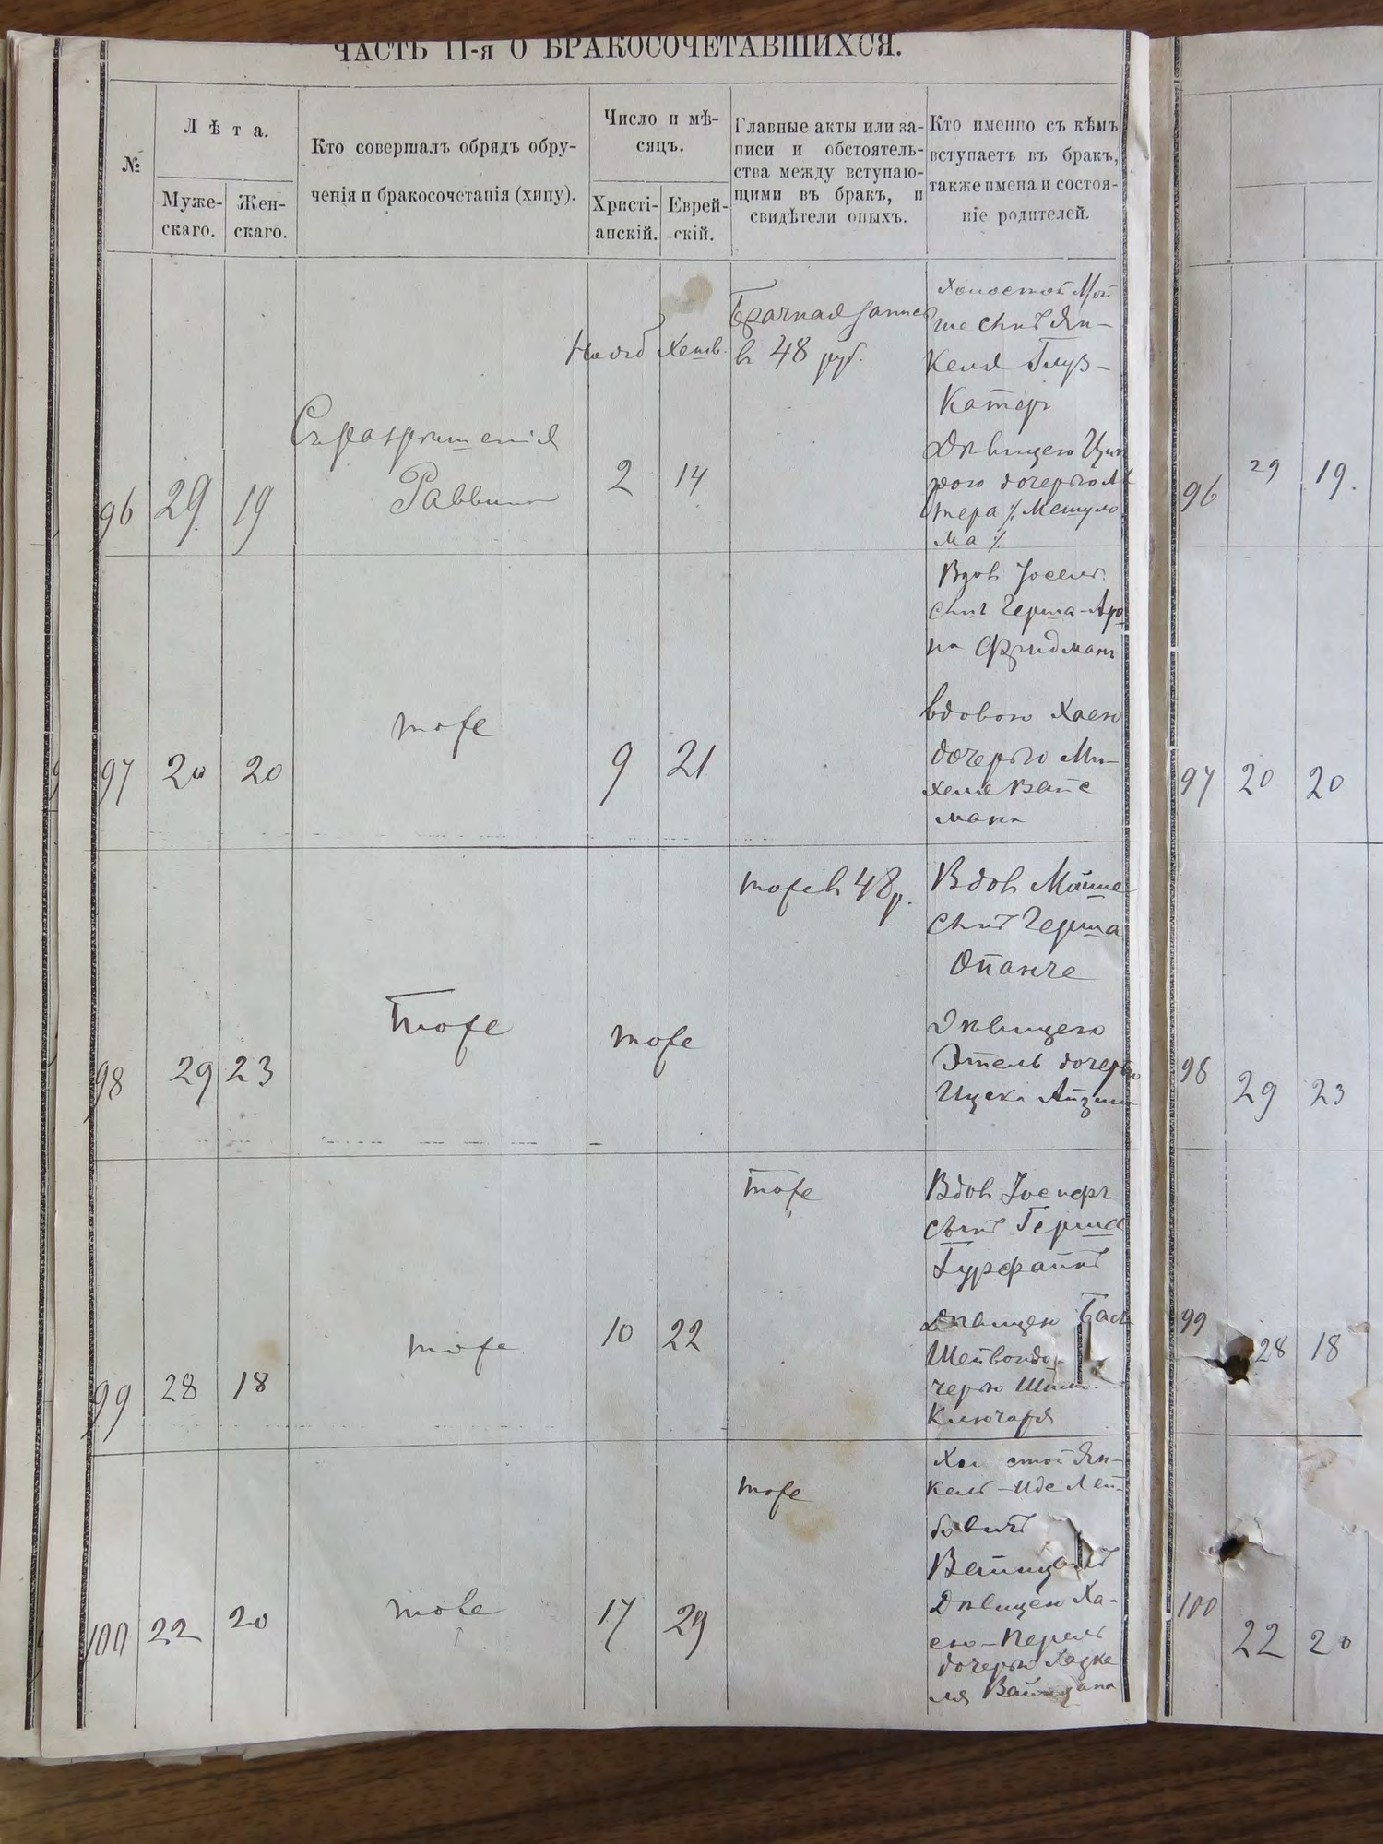 ЧАСТЬ II-я О БРАКОСОЧЕТАВШИХСЯ.
№
Лѣта.
Муже-
скаго.
Жен-
скаго.
Кто совершалъ обрядъ обру-
ченія и бракосочетанія (хипу).
Число и мѣ-
сяцъ.
Христі-
анскій.
Еврей-
скій.
Главные акты или за-
писи и обстоятель-
ства между вступаю-
щими въ бракъ, и
свидѣтели оныхъ.
Кто именно съ кѣмъ
вступаетъ въ бракъ,
также имена и состоя-
ніе родителей.
96 29 19
Съ разрѣшенія
Раввина
Нояб Хешв.
2 14
Брачная запись
въ 48 руб.
Холостой Мой
ше сынъ Ян-
келя Глуз-
Дѣвицею
дочерью
97 20 20
тоже
9 21
Вдов Іосель
сынъ Герша-Аро
на Фридманъ
вдовою Хаею
дочерью Ми-
хеля Вайс
мана
98 29 23
тоже
тоже
тоже въ 48 р.
Вдов Мойше
сынъ Герша
Дѣвицею
Этель дочерью
Ицека
99 28 18
тоже
10 22
тоже
Вдов
сынъ Герша
Гурфайнъ
Дѣвицею Бася
черью
Ключаря
100 22 20
тоже
17 29
тоже
Хол стой Ян-
кель-Иде Лей-
бовичъ
Дѣвицею Ха-
ею-Перель
дочерью Хацке
ля
96 29 19.
97 20 20
98 29 23
99 28 18
100 22 20